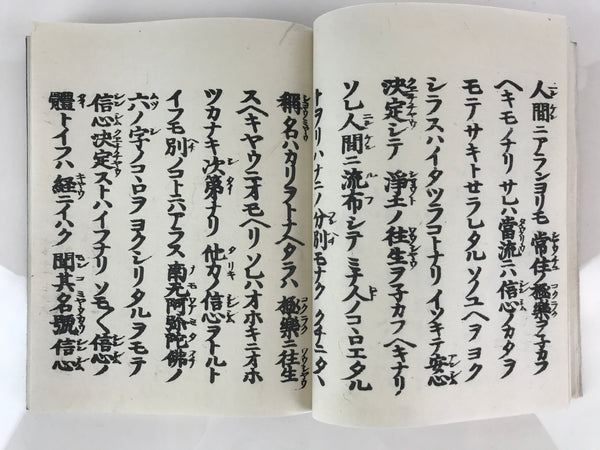 人間ニアランヨリモ 常住ノ極樂ヲ子カフ
ヘキモノナリ サレハ當流ニハ信心ノカタヲ
モテサキトせラレタル ソノユヘヲヨク
シラスハイタツラコトナリ イソキテ安心
決定シテ 淨土ノ往生ヲ子カフヘキナリ
ソレ人間ニ流布シテ ミナ人ノコヽロエタル
トヲリハナニノ分別モナク クチニタヽ
稱名ハカリヲトナヘタラハ 極樂ニ往生
スヘキヤウニオモヘリ ソレハオホキニオホ
ツカナキ次第ナリ 他力ノ信心ヲトルト
イフモ別ノコトニハアラス 南无阿弥陀佛ノ
六ノ字ノコヽロヲヨクシリタルヲモテ
信心決定ストハイフナリ ソモ〱信心ノ
體トイフハ 經ニイハク 聞其名號信心